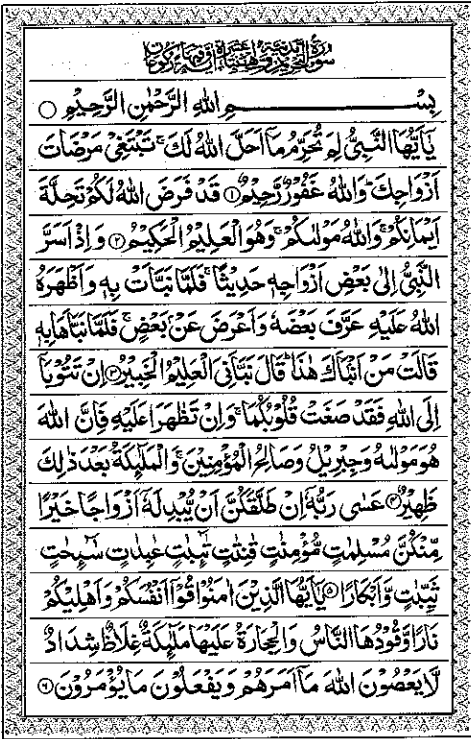 سورة التحريم مدنية وهي اثنتا عشرة آية وفيها ركوعان
بِسْمِ اللهِ الرَّحْمٰنِ الرَّحِيْمِ ○
يٰۤاَيُّهَا النَّبِيُّ لِمَ تُحَرِّمُ مَاۤ اَحَلَّ اللهُ لَكَ ۚ تَبْتَغِيْ مَرْضَاتَ
اَزْوَاجِكَ ؕ وَاللهُ غَفُوْرٌ رَّحِيْمٌ ۝۱ قَدْ فَرَضَ اللهُ لَكُمْ تَحِلَّةَ
اَيْمَانِكُمْ ۚ وَاللهُ مَوْلٰىكُمْ ۚ وَهُوَ الْعَلِيْمُ الْحَكِيْمُ ۝۲ وَاِذْ اَسَرَّ
النَّبِيُّ اِلٰى بَعْضِ اَزْوَاجِهٖ حَدِيْثًا ۚ فَلَمَّا نَبَّاَتْ بِهٖ وَاَظْهَرَهُ
اللهُ عَلَيْهِ عَرَّفَ بَعْضَهٗ وَاَعْرَضَ عَنْۢ بَعْضٍ ۚ فَلَمَّا نَبَّاَهَا بِهٖ
قَالَتْ مَنْ اَنْۢبَاَكَ هٰذَا ؕ قَالَ نَبَّاَنِيَ الْعَلِيْمُ الْخَبِيْرُ ۝۳ اِنْ تَتُوْبَاۤ
اِلَى اللهِ فَقَدْ صَغَتْ قُلُوْبُكُمَا ۚ وَاِنْ تَظٰهَرَا عَلَيْهِ فَاِنَّ اللهَ
هُوَ مَوْلٰىهُ وَجِبْرِيْلُ وَصَالِحُ الْمُؤْمِنِيْنَ ۚ وَالْمَلٰٓئِكَةُ بَعْدَ ذٰلِكَ
ظَهِيْرٌ ۝۴ عَسٰى رَبُّهٗۤ اِنْ طَلَّقَكُنَّ اَنْ يُّبْدِلَهٗۤ اَزْوَاجًا خَيْرًا
مِّنْكُنَّ مُسْلِمٰتٍ مُّؤْمِنٰتٍ قٰنِتٰتٍ تٰٓئِبٰتٍ عٰبِدٰتٍ سٰٓئِحٰتٍ
ثَيِّبٰتٍ وَّاَبْكَارًا ۝۵ يٰۤاَيُّهَا الَّذِيْنَ اٰمَنُوْا قُوْۤا اَنْفُسَكُمْ وَاَهْلِيْكُمْ
نَارًا وَّقُوْدُهَا النَّاسُ وَالْحِجَارَةُ عَلَيْهَا مَلٰٓئِكَةٌ غِلَاظٌ شِدَادٌ
لَّا يَعْصُوْنَ اللهَ مَاۤ اَمَرَهُمْ وَيَفْعَلُوْنَ مَا يُؤْمَرُوْنَ ۝۶